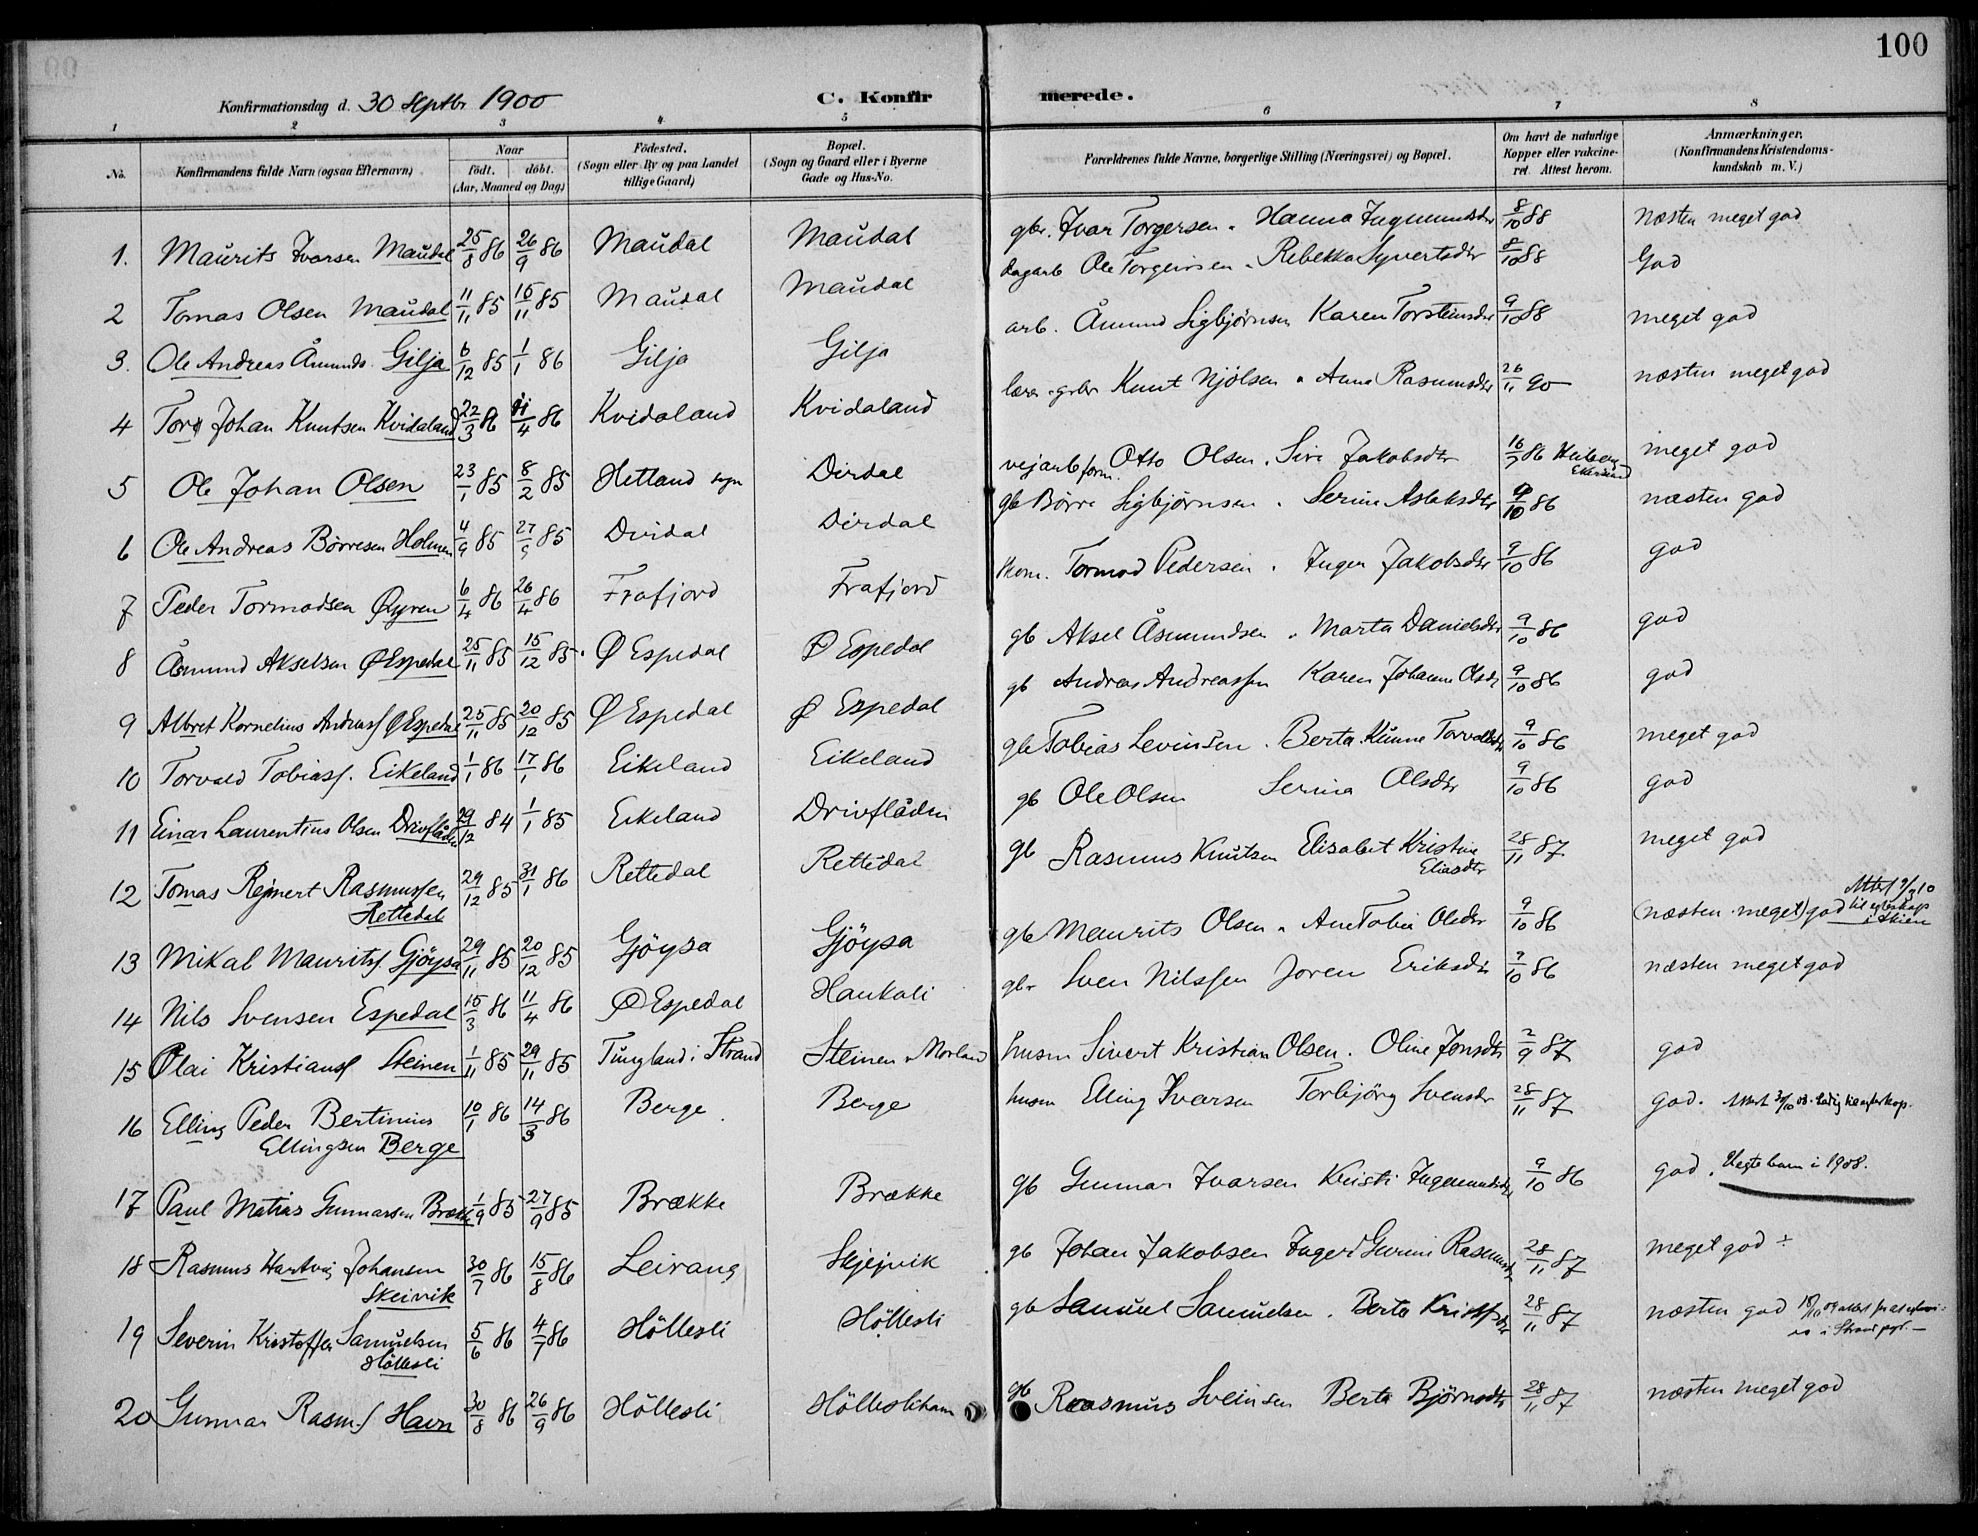 100
Konfirmationsdag d. 30 Septbr 1900
C. Konfirmerede.
1 2 3 4 5 6 7 8
No.
Konfirmandens fulde Navn (ogsaa Efternavn)
Naar
født. døbt.
(Aar, Maaned og Dag)
Fødested.
(Sogn eller By og paa Landet
tillige Gaard)
Bopæl.
(Sogn og Gaard eller i Byerne
Gade og Hus-No.
Forældrenes fulde Navne, borgerlige Stilling (Næringsvei) og Bopæl.
Om havt de naturlige
Kopper eller vakcine-
ret. Attest herom.
Anmærkninger.
(Konfirmandens Kristendoms-
kundskab m. V.)
1. Maurits Ivarsen Maudal 25/8 86 26/9 86 Maudal Maudal gbr. Ivar Torgersen. Hanna Ingmundsdtr 8/10 88 næsten meget god
2 Tomas Olsen Maudal 11/11 85 15/11 85 Maudal Maudal dagarb Ole Torgersen. Rebekka Syvertsdtr 8/10 88 God
3. Ole Andreas Åmunds. Gilja 6/12 85 1/1 86 Gilja Gilja arb. Åmund Sigbjørnsen Karen Torsteinsdtr 9/10 88 meget god
4 Tor Johan Knutsen Kvidaland 22/3 86 11/4 86 Kvidaland Kvidaland lærer gbr Knut Njølsen Anna Rasmusdtr 26/11 90 næsten meget god
5 Ole Johan Olsen 23/1 85 8/2 85 Hetland sogn Dirdal vejarb.form. Otto Olsen. Siri Jakobsdtr 16/7 86 Ekersund meget god
6 Ole Andreas Børresen Holmen 4/9 85 27/9 85 Dirdal Dirdal gb Børre Sigbjørnsen. Serine Aslaksdtr 9/10 86 næsten god
7 Peder Tormodsen Øyren 6/4 86 26/4 86 Frafjord Frafjord Tormod Pedersen. Inger Jakobsdtr 9/10 86 god
8 Åsmund Akselsen Ø Espedal 25/11 85 15/12 85. Ø Espedal Ø Espedal gb Aksel Åsmundsen. Marta Danielsdtr 9/10 86 god
9 Albret Kornelius Andreass Ø Espedal 25/11 85 20/12 85 Ø Espedal Ø Espedal gb Andreas Andreassen Karen Johanne Olsdtr 9/10 86 god
10 Torvald Tobiass. Eikeland 1/1 86 17/1 86 Eikeland Eikeland gb Tobias Levinsen. Berta Kunne Torvaldsdtr 9/10 86 meget god
11 Einar Laurentius Olsen Drivflåden 29/12 84 1/1 85 Eikeland Drivflåden gb Ole Olsen Serina Olsdtr 9/10 86 god
12 Tomas Reinert Rasmussen
Rettedal 29/12 85 31/1 86 Rettedal Rettedal gb Rasmus Knutsen Elisabet Kristine
Eliasdtr 28/11 87 meget god
13 Mikal Mauritss. Gjöysa 29/11 85 20/12 85 Gjöysa Gjöysa gb Maurits Olsen Ane Tobia Olsdtr 9/10 86 (næsten meget) god Attest 9/9 10
til egteskap
i Skien
14 Nils Svensen Espedal 15/3 86 11/4 86 Ø Espedal Haukali gbr Sven Nilssen Joren Eriksdtr 9/10 86 næsten meget god
15 Olai Kristianss Steinen 1/11 85 29/11 85 Tungland i Strand Steinen Morland husm Sivert Kristian Olsen. Oline Jonsdtr 2/9 87 god
16 Elling Peder Bertinius
Ellingsen Berge 10/1 86 14/3 86 Berge. Berge husm Elling Ivarsen Torbjörg Svensdtr 28/11 87 god.
17 Paul Matias Gunnarsen Brække 1/9 85 27/9 85 Brække Brække gb Gunnar Ivarsen Kristi Ingemundsdtr 9/10 86 god. Uegte barn i 1908.
18 Rasmus Hartvig Johansen
Skeivik 30/7 86 15/8 86 Leirang Skjejvik gb Johan Jakobsen Inger Gurine Rasmusdtr 28/11 87 meget god ÷
19 Severin Kristoffer Samuelsen
Höllesli 5/6 86 4/7 86 Höllesli Höllesli gb Samuel Samuelsen. Berta Kristofsdtr 28/11 87 næsten god
20 Gunnar Rasm.s Havn 30/8 86 26/9 86 Höllesli Höllesliham gb Rasmus Sveinsen Berta Björnsdtr 28/11 87 næsten meget god